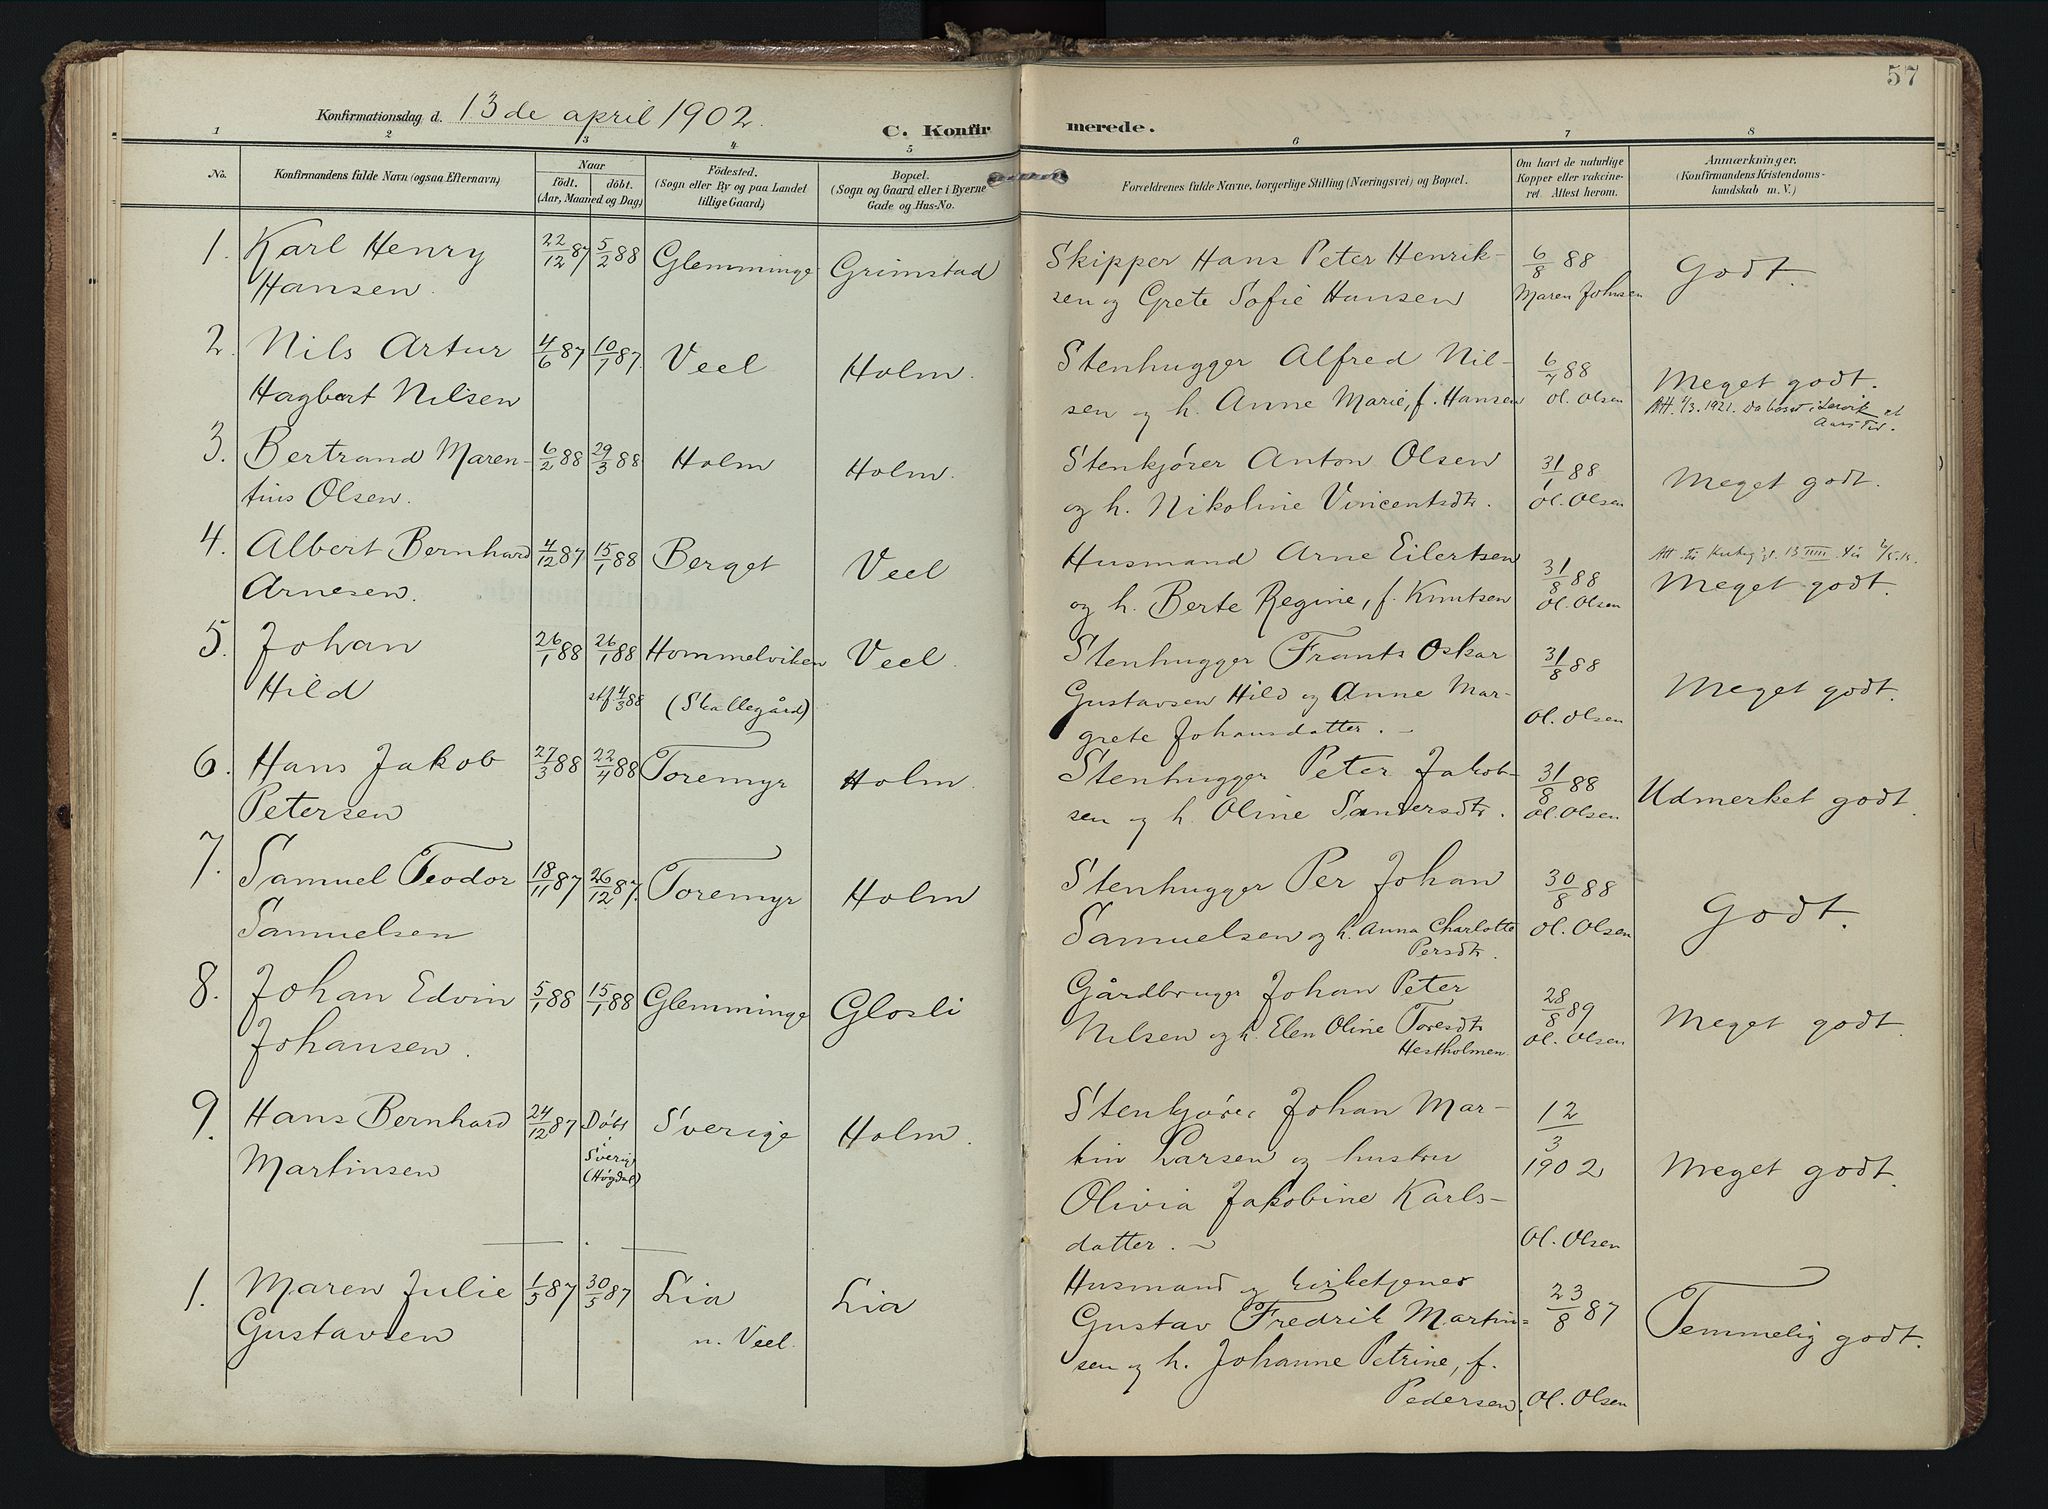 57
Konfirmationsdag d. 13de april 1902.
C. Konfirmerede.
1 2 3 4 5 6 7 8
No.
Konfirmandens fulde Navn (ogsaa Efternavn)
Naar
födt. döbt.
(Aar, Maaned og Dag)
Födested.
(Sogn eller By og paa Landet
tillige Gaard)
Bopæl.
(Sogn og Gaard eller i Byerne
Gade og Hus-No.
Forældrenes fulde Navne, borgerlige Stilling (Næringsvei) og Bopæl.
Om havt de naturlige
Kopper eller vakcine-
ret. Attest herom.
Anmærkninger.
(Konfirmandens Kristendoms-
kundskab m. V.)
1. Karl Henry 22/12 87 5/2 88 Glemminge Grimstad Skipper Hans Peter Henrik- 6/8 88 Godt.
Hansen. sen og Grete Sofie Hansen Maren Johnsen
2. Nils Artur 4/6 87 10/7 87. Veel Holm. Stenhugger Alfred Nil- 6/7 88 Meget godt.
Hagbart Nilsen sen og h. Anne Marie, f. Hansen Ol. Olsen Att. 1/3. 1921. Da boset i
3. Bertrand Maren- 6/2 88 29/3 88 Holm Holm. Stenkjører Anton Olsen 31/1 88 Meget godt.
tius Olsen. og h. Nikoline Vincentsdtr. Ol. Olsen
4. Albert Bernhard 4/12 87 15/1 88 Berget Veel Husmand Arne Eilertsen 31/8 88 Att. til
Arnesen. og h. Berte Regine, f. Knutsen Ol. Olsen Meget godt.
5. Johan 26/1 88 26/1 88 Hommelviken Veel. Stenhugger Frants Oskar 31/8 88 Meget godt.
Hild stf 4/3 88 (Skallegård) Gustavsen Hild og Anne Mar- Ol. Olsen
grete Johansdatter. -
6. Hans Jakob 27/3 88 22/4 88 Toremyr Holm. Stenhugger Peter Jakob- 31/8 88 Udmerket godt.
Petersen sen og h. Oline Sandersdtr. Ol. Olsen
7. Samuel Teodor 18/11 87 26/12 87. Toremyr Holm Stenhugger Per Johan 30/8 88 Godt.
Samuelsen Samuelsen og h. Anna Charlotte Ol. Olsen
Persdtr.
8. Johan Edvin 5/1 88 15/1 88 Glemminge Glosli Gårdbruger Johan Peter 28/8 89 Meget godt.
Johansen. Nilsen og h. Elen Oline Toresdtr Ol. Olsen
Hestholmen.
9. Hans Bernhard 24/12 87 Döbt Sverige Holm. Stenkjører Johan Mar- 12/3
Martinsen i Sverig (Högdal) tin Larsen og hustru 1902 Meget godt.
Olivia Jakobine Karls-
datter. - Ol. Olsen
1. Maren Julie 1/5 87 30/5 87 Lia Lia Husmand og kirketjener 23/8 87 Temmelig godt.
Gustavsen u. Veel. Gustav Fredrik Martin-
sen og h. Johanne Petrine, f.
Pedersen. Ol. Olsen